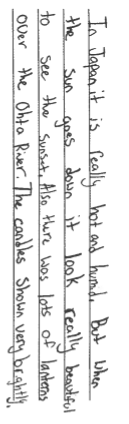 In Japan it is really hot and humid. But when
the sun goes down it look really beautiful
to see the sunset. Also there was lots of lanterns
over the Ohta River. The candles shown very brightly.